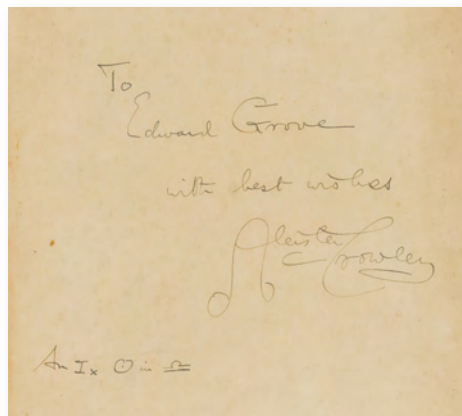 To
Edward Grove
with best wishes
Aleister Crowley
An Ix ☉ in ♎